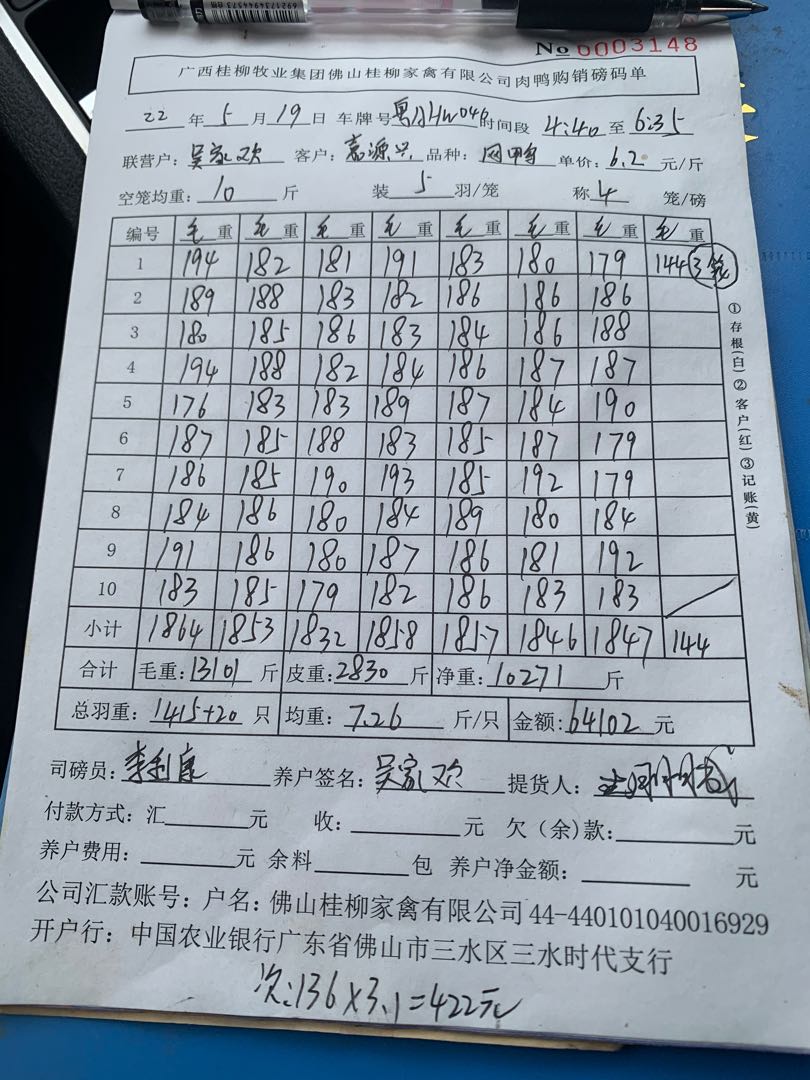 6921734944573
No 0003148
广西桂柳牧业集团佛山桂柳家禽有限公司肉鸭购销磅码单
22 年 5 月 19 日 车牌号 时间段 4:40 至 6:35
联营户: 吴家欢 客户: 嘉源兴 品种: 网鸭 单价: 6.2 元/斤
空笼均重: 10 斤 装 5 羽/笼 称 4 笼/磅
编号 毛重 毛重 毛重 毛重 毛重 毛重 毛重 毛重
1 194 182 181 191 183 180 179 144 3笼
2 189 188 183 182 186 186 186
3 180 185 186 183 184 186 188
4 194 188 182 184 186 187 187
5 176 183 183 189 187 184 190
6 187 185 188 183 185 187 179
7 186 185 190 193 185 192 179
8 184 186 180 184 189 180 184
9 191 186 180 187 186 181 192
10 183 185 179 182 186 183 183
小计 1864 1853 1832 1858 1857 1846 1847 144
合计 毛重: 13101 斤 皮重: 2830 斤 净重: 10271 斤
总羽重: 1415+20 只 均重: 7.26 斤/只 金额: 64102 元
①存根(白)②客户(红)③记账(黄)
司磅员: 李利 养户签名: 吴家欢 提货人:
付款方式: 汇 元 收: 元 欠(余)款: 元
养户费用: 元 余料 包 养户净金额: 元
公司汇款账号: 户名: 佛山桂柳家禽有限公司 44-440101040016929
开户行: 中国农业银行广东省佛山市三水区三水时代支行
次:136×3.1=422元